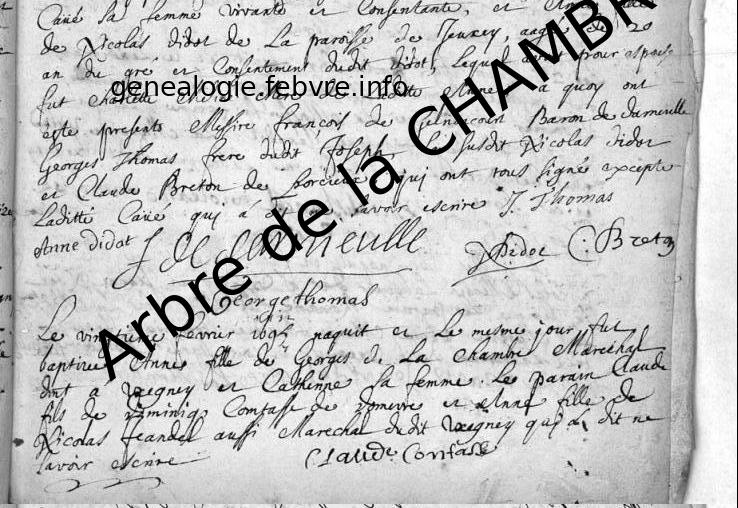 Cavé sa femme vivante et Consentante, et
de Nicolas didot de La paroisse de Jeuxey, aagée de 20
an du gré et Consentement dudit didot, Lequel pour
fut Ladite Anne a quoy ont
genealogie.febvre.info
este presents Messire françois de Baron de darneuille
Georges Thomas frere dudit Joseph, Le susdit Nicolas didot
et Claude Breton de qui ont tous signé excepte
Laditte Cavé qui a dit ne savoir escrire J. Thomas
Anne didot f de darneuille NDidot C: Breton
George thomas
Arbre de la CHAMBR
Le vingtieme fevrier naquit et Le mesme jour fut
baptizee Anne fille de Georges de La Chambre Marechal
dmt a Vxegney et Catherine sa femme. Le parain Claude
fils de dominiq Contasse de domevre et Anne fille de
Nicolas Jeandel aussi Marechal dudit Vxegney qui a dit ne
savoir escrire Claude Contasse